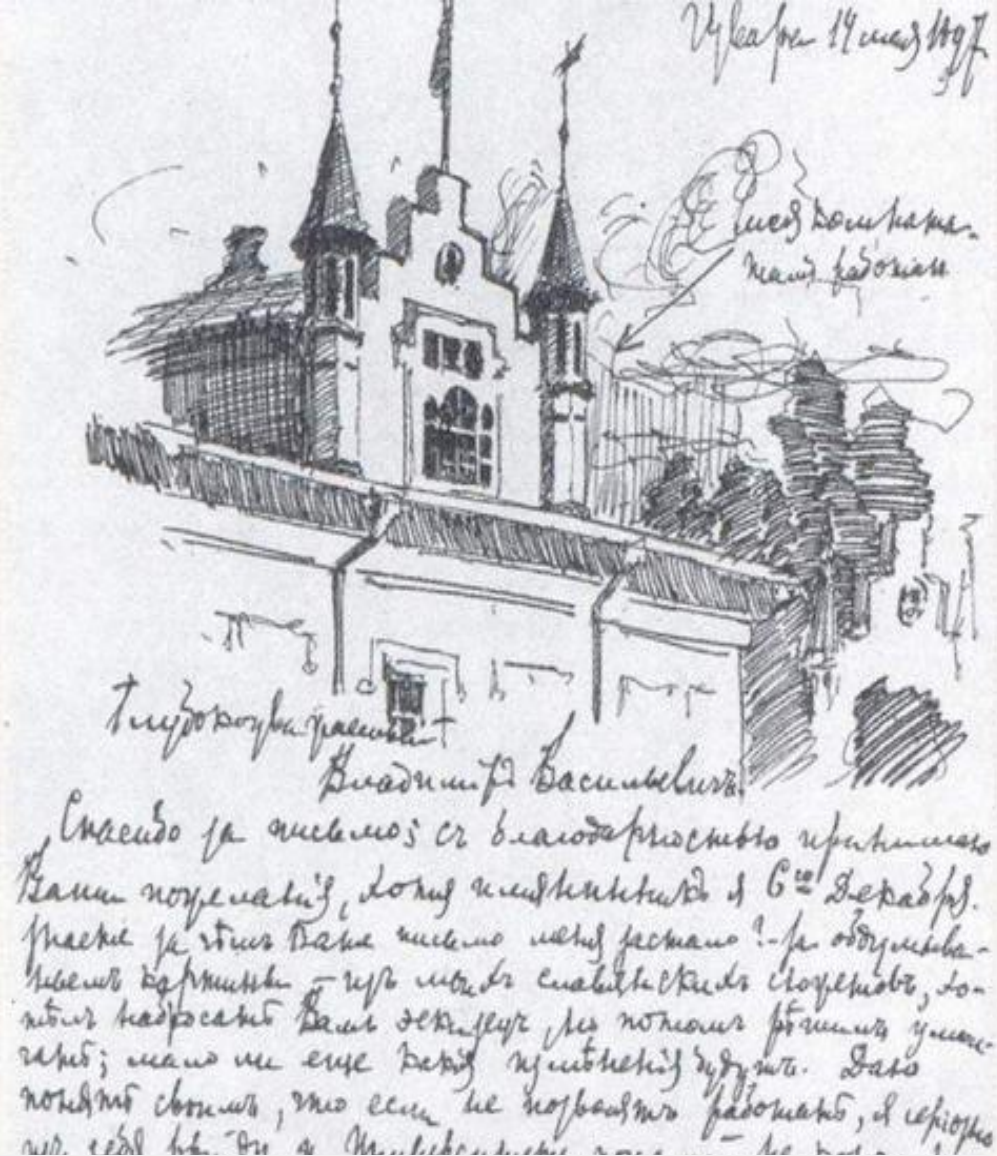 Извара 14 мая 1897
моя комната.
тамъ работаю
Глубокоуважаемый
Владиміръ Васильевичъ.
Спасибо за письмо; съ благодарностью принимаю
Ваши пожеланія, хотя имянинникъ я 6го Декабря.
Знаете за чѣмъ Ваше письмо меня застало? - за обдумыва-
ньемъ картины - изъ моихъ славянскихъ сюжетовъ, хо-
тѣлъ набросать Вамъ эскизецъ, но потомъ рѣшилъ умол-
чать; мало ли еще какія измѣненія будутъ. Даю
понять своимъ, что если не позволятъ работать, я серіозно